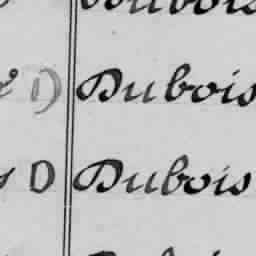 D Dubois
D Dubois